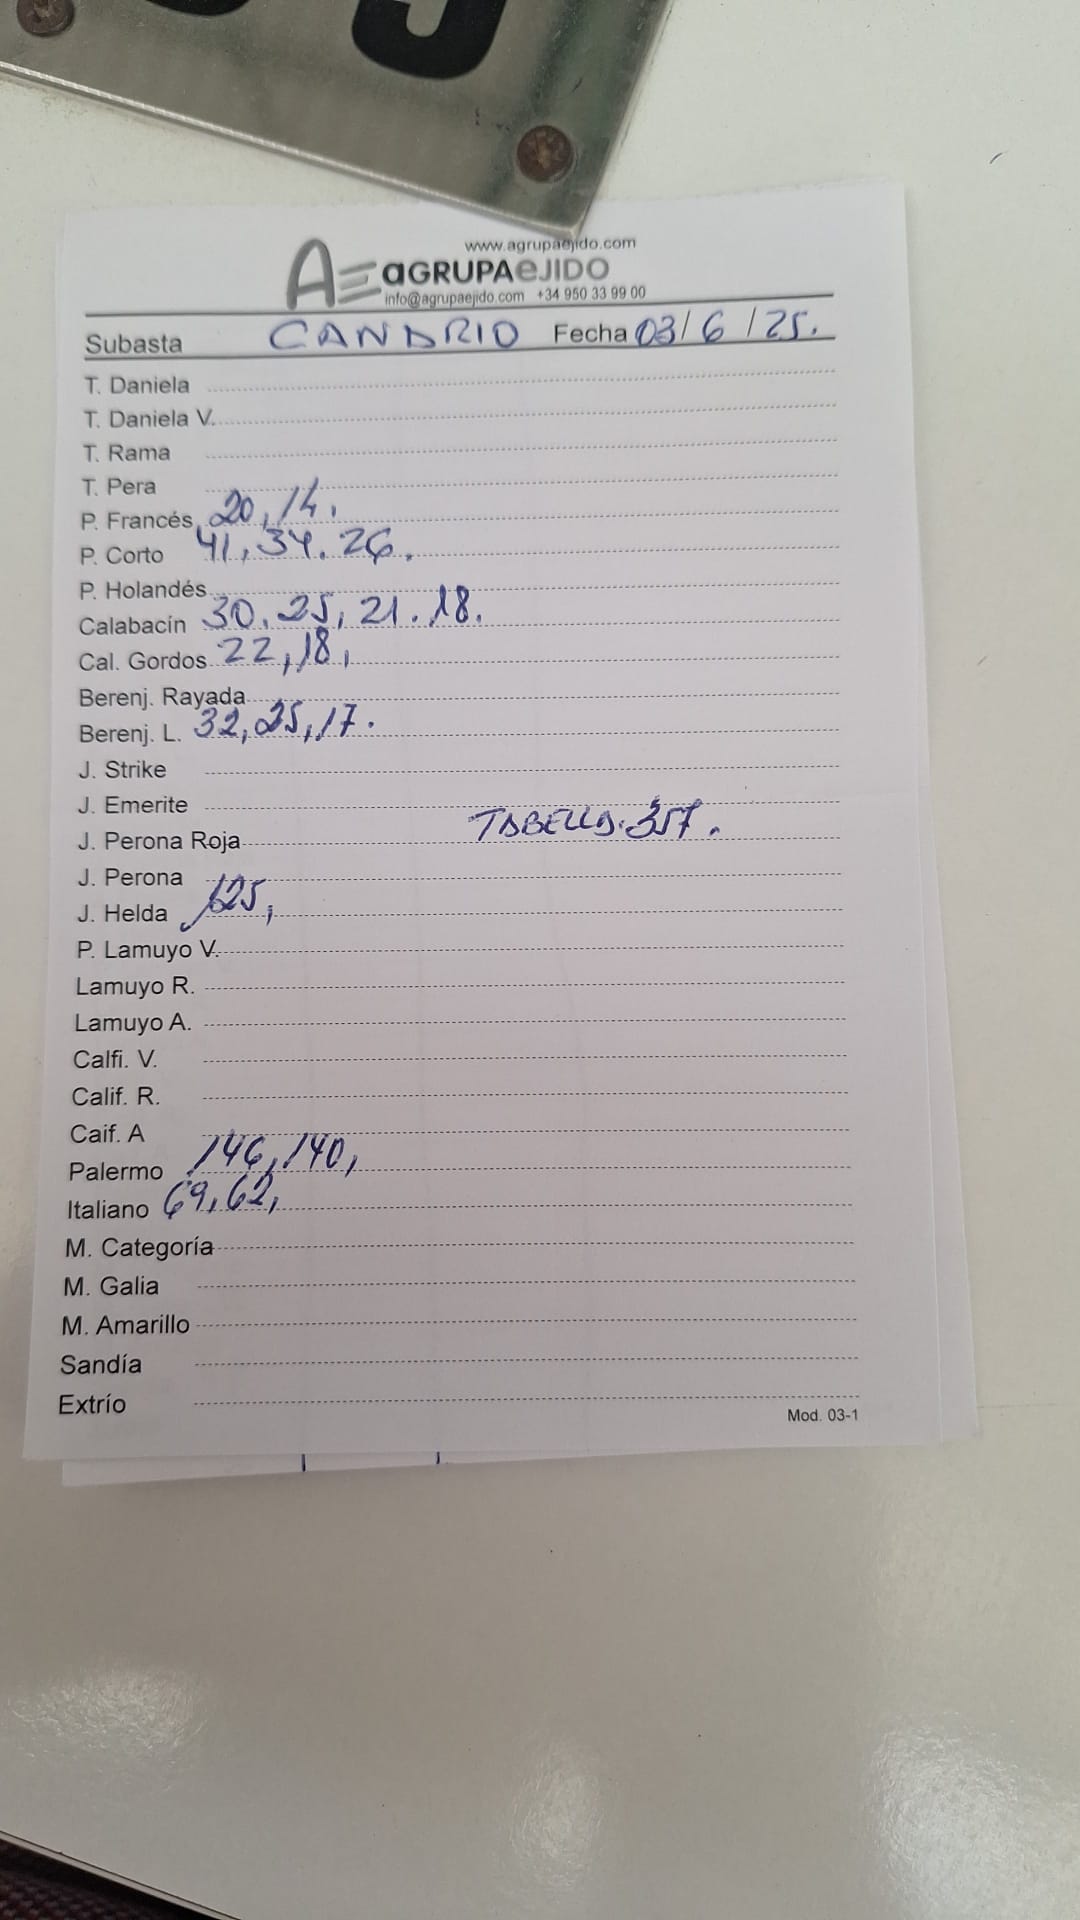 www.agrupaejido.com
AE aGRUPAeJIDO
info@agrupaejido.com +34 950 33 99 00
Subasta CANDRIO Fecha 03/6/25.
T. Daniela
T. Daniela V.
T. Rama
T. Pera
P. Francés 20, 14.
P. Corto 41, 34. 26.
P. Holandés
Calabacín 30. 25, 21. 18.
Cal. Gordos 22, 18,
Berenj. Rayada
Berenj. L. 32, 25, 17.
J. Strike
J. Emerite
TABELLA. 357.
J. Perona Roja
J. Perona
J. Helda 125,
P. Lamuyo V.
Lamuyo R.
Lamuyo A.
Calfi. V.
Calif. R.
Caif. A
Palermo 146, 140,
Italiano 69, 62,
M. Categoría
M. Galia
M. Amarillo
Sandía
Extrío
Mod. 03-1